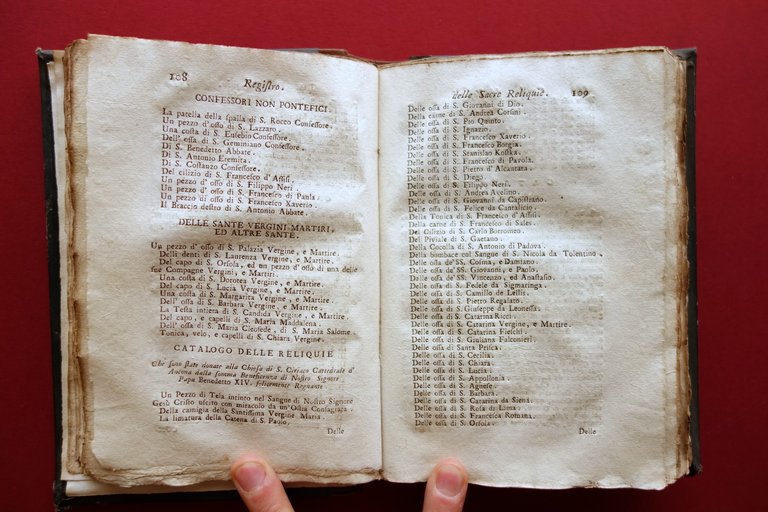 108
Registro.
CONFESSORI NON PONTEFICI.
La patella della spalla di S. Rocco Confessore.
Un pezzo d'osso di S. Lazzaro.
Una costa di S. Eusebio Confessore.
Dell' ossa di S. Geminiano Confessore.
Di S. Benedetto Abbate.
Di S. Antonio Eremita.
Di S. Costanzo Confessore.
Del cilizio di S. Francesco d'Assisi.
Un pezzo d' osso di S. Filippo Neri.
Un pezzo d' osso di S. Francesco di Paula.
Un pezzo di S. Francesco Xaverio.
Il Braccio destro di S. Antonio Abbate.
DELLE SANTE VERGINI MARTIRI,
ED ALTRE SANTE.
Un pezzo d' osso di S. Palazia Vergine, e Martire.
Delli denti di S. Laurenza Vergine, e Martire.
Del capo di S. Orsola, ed un pezzo d'osso di una delle
sue Compagne Vergini, e Martiri.
Una costa di S. Dorotea Vergine, e Martire.
Del capo di S. Lucia Vergine, e Martire.
Una costa di S. Margarita Vergine, e Martire.
Dell' ossa di S. Barbara Vergine, e Martire.
La Testa intiera di S. Candida Vergine, e Martire.
Del capo, e capelli di S. Maria Maddalena.
Dell' ossa di S. Maria Cleofede, di S. Maria Salome.
Tonica, velo, e capelli di S. Chiara Vergine.
CATALOGO DELLE RELIQUIE
Che sono state donate alla Chiesa di S. Ciriaco Cattedrale d'
Ancona dalla somma Beneficenza di Nostro Signore
Papa Benedetto XIV. felicemente Regnante
Un Pezzo di Tela intinto nel Sangue di Nostro Signore
Gesù Cristo uscito con miracolo da un'Ostia Consagrata.
Della camigia della Santissima Vergine Maria.
La limatura della Catena di S. Paolo.
Delle
delle Sacre Reliquie. 109
Delle ossa di S. Giovanni di Dio.
Della carne di S. Andrea Corsini.
Delle ossa di S. Pio Quinto.
Delle ossa di S. Ignazio.
Delle ossa di S. Francesco Xaverio.
Delle ossa di S. Francesco Borgia.
Delle ossa di S. Stanislao Kostka.
Delle ossa di S. Francesco di Pavola.
Delle ossa di S. Pietro d'Alcantara.
Delle ossa di S. Diego.
Delle ossa di S. Filippo Neri.
Delle ossa di S. Andrea Avelino.
Delle ossa di S. Giovanni da Capistrano.
Delle ossa di S. Felice da Cantalicio.
Della Tonica di S. Francesco d'Assisi.
Della carne di S. Francesco di Sales.
Del Cilizio di S. Carlo Borromeo.
Del Piviale di S. Gaetano.
Della Cocolla di S. Antonio di Padova.
Della bombace col Sangue di S. Nicola da Tolentino.
Delle ossa de' SS. Cosma, e Damiano.
Delle ossa de' SS. Giovanni, e Paolo.
Delle ossa de' SS. Vincenzo, ed Anastasio.
Delle ossa di S. Fedele da Sigmaringa.
Delle ossa di S. Camillo de Lellis.
Delle ossa di S. Pietro Regalato.
Delle ossa di S. Giuseppe da Leonessa.
Delle ossa di S. Catarina Ricci.
Delle ossa di S. Catarina Vergine, e Martire.
Delle ossa di S. Catarina Fieschi.
Delle ossa di S. Giuliana Falconieri.
Delle ossa di Santa Prisca.
Delle ossa di S. Cecilia.
Delle ossa di S. Chiara.
Delle ossa di S. Lucia.
Delle ossa di S. Appollonia.
Delle ossa di S. Agnese.
Delle ossa di S. Barbara.
Delle ossa di S. Catarina da Siena.
Delle ossa di S. Rosa di Lima.
Delle ossa di S. Francesca Romana.
Delle ossa di S. Orsola.
Delle